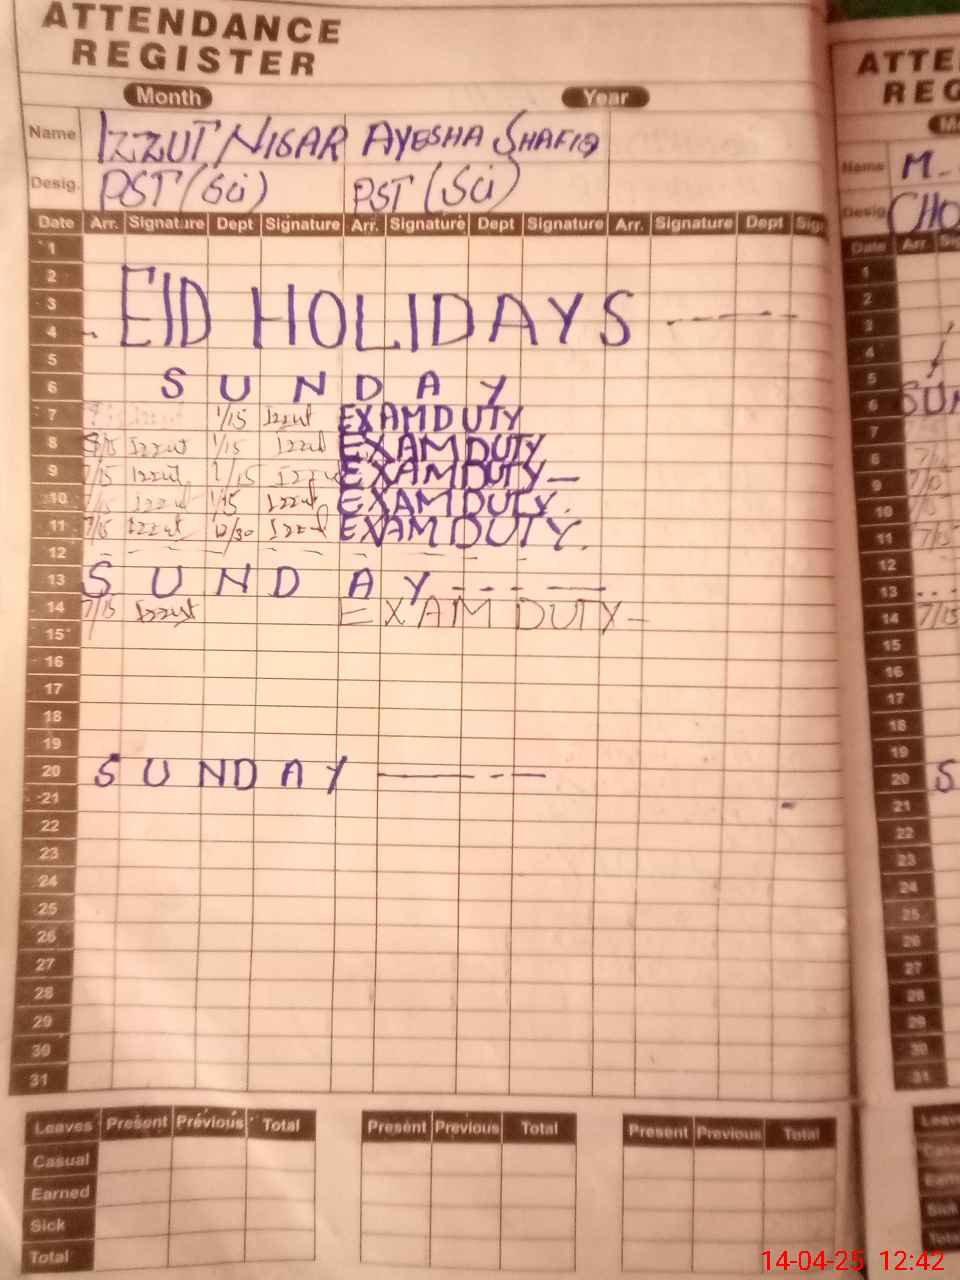 ATTENDANCE
REGISTER
Month Year
Name IZZUT NISAR AYESHA SHAFIQ
Desig. PST (Sci) PST (Sci)
Date Arr. Signature Dept Signature Arr. Signature Dept Signature Arr. Signature Dept Sig
1
2
3 EID HOLIDAYS
4
5
6 SUNDAY
7 1/15 Izzut EXAM DUTY
8 Izzut 1/15 Izzut EXAM DUTY
9 7/15 Izzut 1/15 Izzut EXAM DUTY
10 7/15 Izzut 1/15 Izzut EXAM DUTY.
11 7/15 Izzut 12/30 Izzut EXAM DUTY.
12
13 SUNDAY
14 7/15 Izzut EXAM DUTY
15
16
17
18
19
20 SUNDAY
21
22
23
24
25
26
27
28
29
30
31
Leaves Present Previous Total Present Previous Total Present Previous Total
Casual
Earned
Sick
Total
ATTE
REG
Name M.
Desig CHO
Date Arr.
1
2
3
4
5
6 SUN
7
8
9
10
11 7/15
12
13
14 7/15
15
16
17
18
19
20 S
21
22
23
24
25
26
27
28
29
30
31
14-04-25 12:42